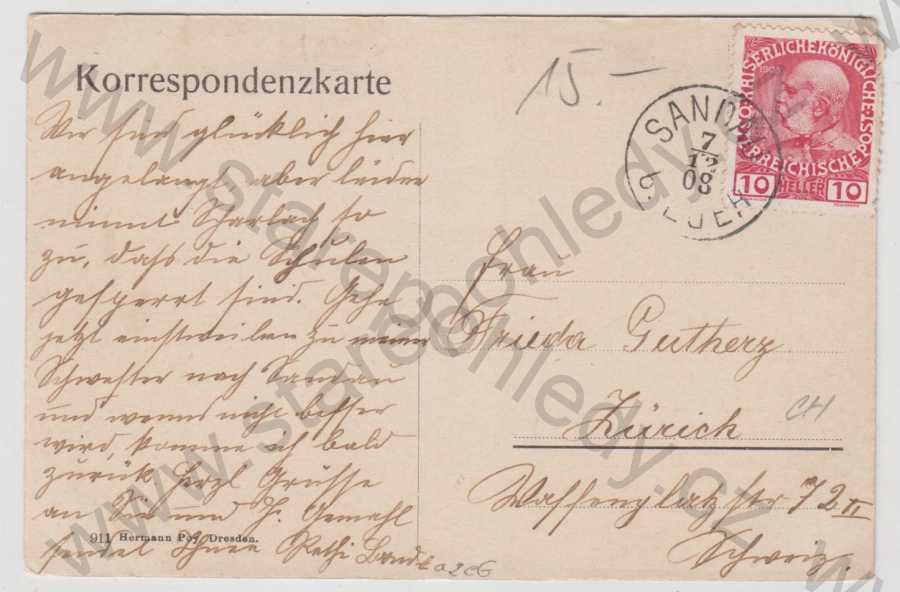 Korrespondenzkarte
Wir sind glücklich hier
angelangt, aber leider
nimmt Scharlach so
zu, dass die Schulen
gesperrt sind. Gehe
jetzt einstweilen zu meiner
Schwester nach Sandau
und wenns nicht besser
wird, komme ich bald
zurück. Herzl Grüsse
an Sie und H. Gemahl
sendet Ihnen
911 Hermann Poy, Dresden.
15.-
SANDAU
7
12
08
b. EGER
KAISERLICHE KÖNIGLICHE ÖSTERREICHISCHE POST
1908
10 HELLER 10
Frau
Frieda Gutherz
Zürich
CH
Waffenplatzstr 72 II
Schweiz.
www.starepohledy.cz